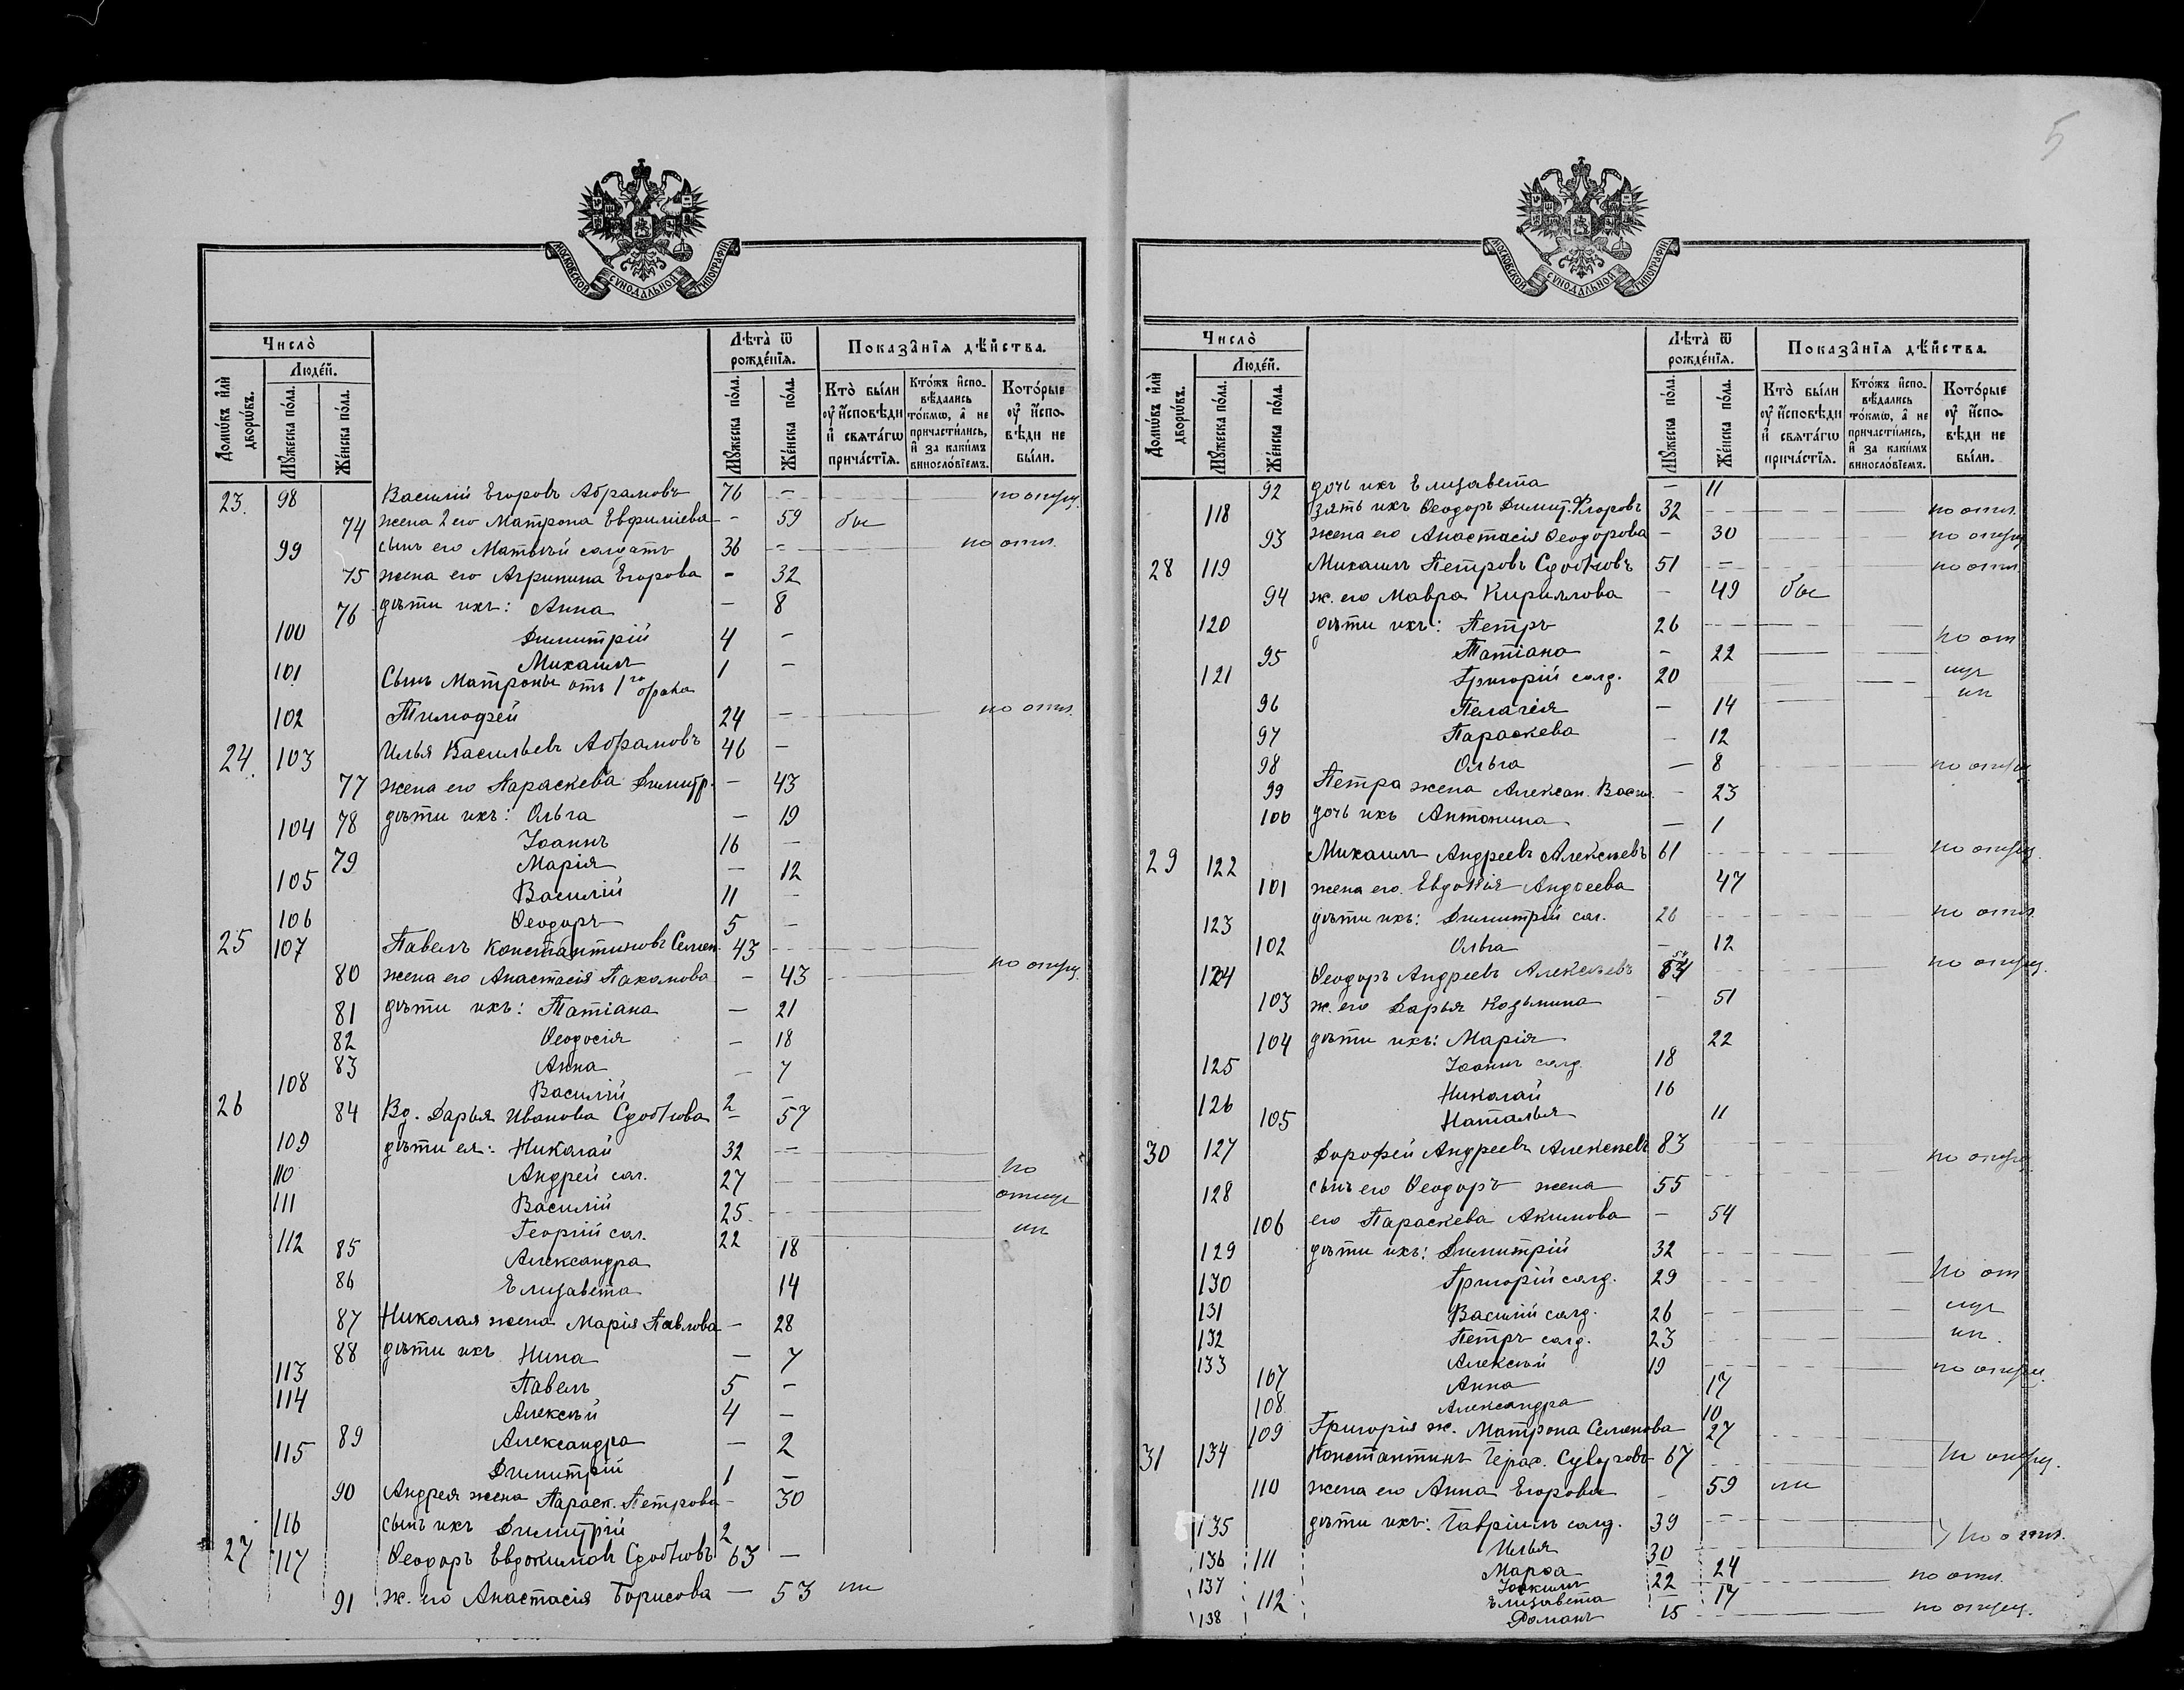 5
МОСКОВСКОЙ СѴНОДАЛЬНОЙ ТИПОГРАФІИ
Число̀
Людéй.
Домѡ́въ и҆лѝ дворѡ́въ.
Мꙋ́жеска по́ла.
Же́нска по́ла.
Лѣта̀ ѿ рожде́нїѧ.
Мꙋ́жеска по́ла.
Же́нска по́ла.
Показа̑нїѧ дѣ́йства.
Кто̀ бы́ли ᲂу҆ и҆́сповѣди и҆ свѧта́гѡ прича́стїѧ.
Кто́жъ и҆спо-вѣ́дались то́кмѡ, а҆ не причасти́лись, и҆ за каки́мъ винослѡ́вїемъ.
Кото́рые ᲂу҆ и҆́спо-вѣди не бы́ли.
23. 98 Василій Егоровъ Абрамовъ 76 – по опущ.
74 жена 2 его Матрона Евфиміева – 59 бы
99 сынъ его Матвѣй солдатъ 36 – по отл.
75 жена его Агрипина Егорова – 32
76 дѣти ихъ: Анна – 8
100 Димитрій 4 –
101 Михаилъ 1 –
Сынъ Матроны отъ 1го брака
102 Тимофей 24 – по отл.
24. 103 Илья Васильевъ Абрамовъ 46 –
77 жена его Параскева Димитр. – 43
78 дѣти ихъ: Ольга – 19
104 Іоаннъ 16 –
79 Марія – 12
105 Василій 11 –
106 Ѳеодоръ 5 –
25 107 Павелъ Константиновъ Семен. 43 –
80 жена его Анастасія Пахомова – 43 по опущ.
81 дѣти ихъ: Татіана – 21
82 Ѳеодосія – 18
83 Анна – 7
108 Василій 2 –
26 84 Вд. Дарья Иванова Сдобнова – 57
109 дѣти ея: Николай 32 –
110 Андрей сол. 27 по
111 Василій 25 отлуч
112 Георгій сол. 22 ии
85 Александра 18
86 Елизавета 14
87 Николая жена Марія Павлова – 28
88 дѣти ихъ Нина – 7
113 Павелъ 5 –
114 Алексѣй 4 –
89 Александра – 2
115 Димитрій 1 –
90 Андрея жена Параск. Петрова – 30
116 сынъ ихъ Димитрій 2
27 117 Ѳеодоръ Евдокимовъ Сдобновъ 63 –
91 ж. его Анастасія Борисова – 53 ии
МОСКОВСКОЙ СѴНОДАЛЬНОЙ ТИПОГРАФІИ
Число̀
Людéй.
Домѡ́въ и҆лѝ дворѡ́въ.
Мꙋ́жеска по́ла.
Же́нска по́ла.
Лѣта̀ ѿ рожде́нїѧ.
Мꙋ́жеска по́ла.
Же́нска по́ла.
Показа̑нїѧ дѣ́йства.
Кто̀ бы́ли ᲂу҆ и҆́сповѣди и҆ свѧта́гѡ прича́стїѧ.
Кто́жъ и҆спо-вѣ́дались то́кмѡ, а҆ не причасти́лись, и҆ за каки́мъ винослѡ́вїемъ.
Кото́рые ᲂу҆ и҆́спо-вѣди не бы́ли.
92 дочь ихъ Елизавета – 11
118 Зять ихъ Ѳеодоръ Димит. 32 по отл.
93 жена его Анастасія Ѳеодорова – 30 по опущ
28 119 Михаилъ Петровъ Сдобновъ 51 – по отл.
94 ж. его Мавра Кириллова – 49 бы
120 дѣти ихъ: Петръ 26 по от
95 Татіана – 22
121 Григорій солд. 20 луч
96 Пелагія – 14 ии
97 Параскева – 12
98 Ольга – 8 по опущ
99 Петра жена Алексан. Васил. – 23
100 дочь ихъ Антонина – 1
29 122 Михаилъ Андреевъ Алексѣевъ 61 по опущ.
101 жена его. Евдокія Андреева 47
123 дѣти ихъ: Димитрій сол. 26 по отл.
102 Ольга – 12
124 Ѳеодоръ Андреевъ Алексѣевъ 54 по опущ.
103 ж. его Дарья Козьмина – 51
104 дѣти ихъ: Марія 22
125 Іоаннъ солд. 18
126 Николай 16
105 Наталья 11
30 127 Дорофей Андреевъ Алексѣевъ 83 по опущ.
128 сынъ его Ѳеодоръ жена 55
106 его Параскева Акимова – 54
129 дѣти ихъ: Димитрій 32
130 Григорій солд. 29 по от
131 Василій солд. 26 луч
132 Петръ солд. 23 ии.
133 Алексѣй 19 по опущ.
107 Анна 17
108 Александра 10
109 Григорія ж. Матрона Семенова 27
31 134 Константинъ Герас. Суворовъ 67 по опущ.
110 жена его Анна Егорова – 59 ии
135 дѣти ихъ: Гавріилъ солд. 39 – по отл.
136 Илья 30
111 Марѳа 24
137 Іоакимъ 22 по отл.
112 Елизавета 17
138 Романъ 15 по опущ.